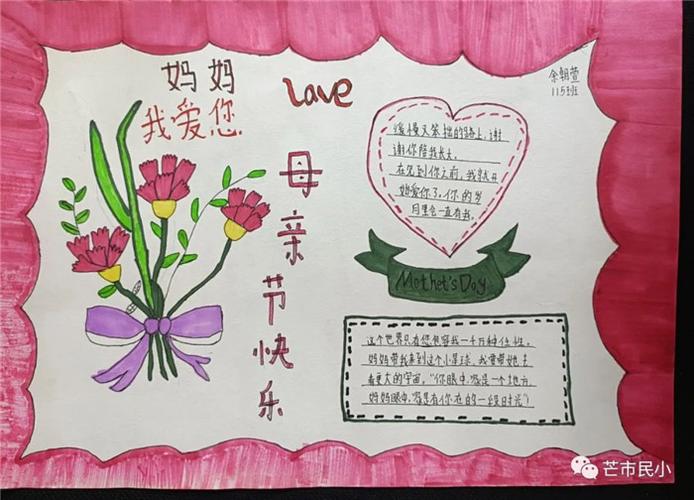 妈妈
我爱您
Love
余朝萱
115班
母亲节快乐
缓慢又笨拙的路上，谢
谢你陪我长大。
在见到你之前，我就开
始爱你了。你的岁
月里会一直有我。
Mother's Day
这个世界只有您包容我一千万种任性，
妈妈带我来到这个小星球，我要带她去
看更大的宇宙。“你眼中，家是一个地方，
妈妈眼中，家是有你在的一段时光”）
芒市民小